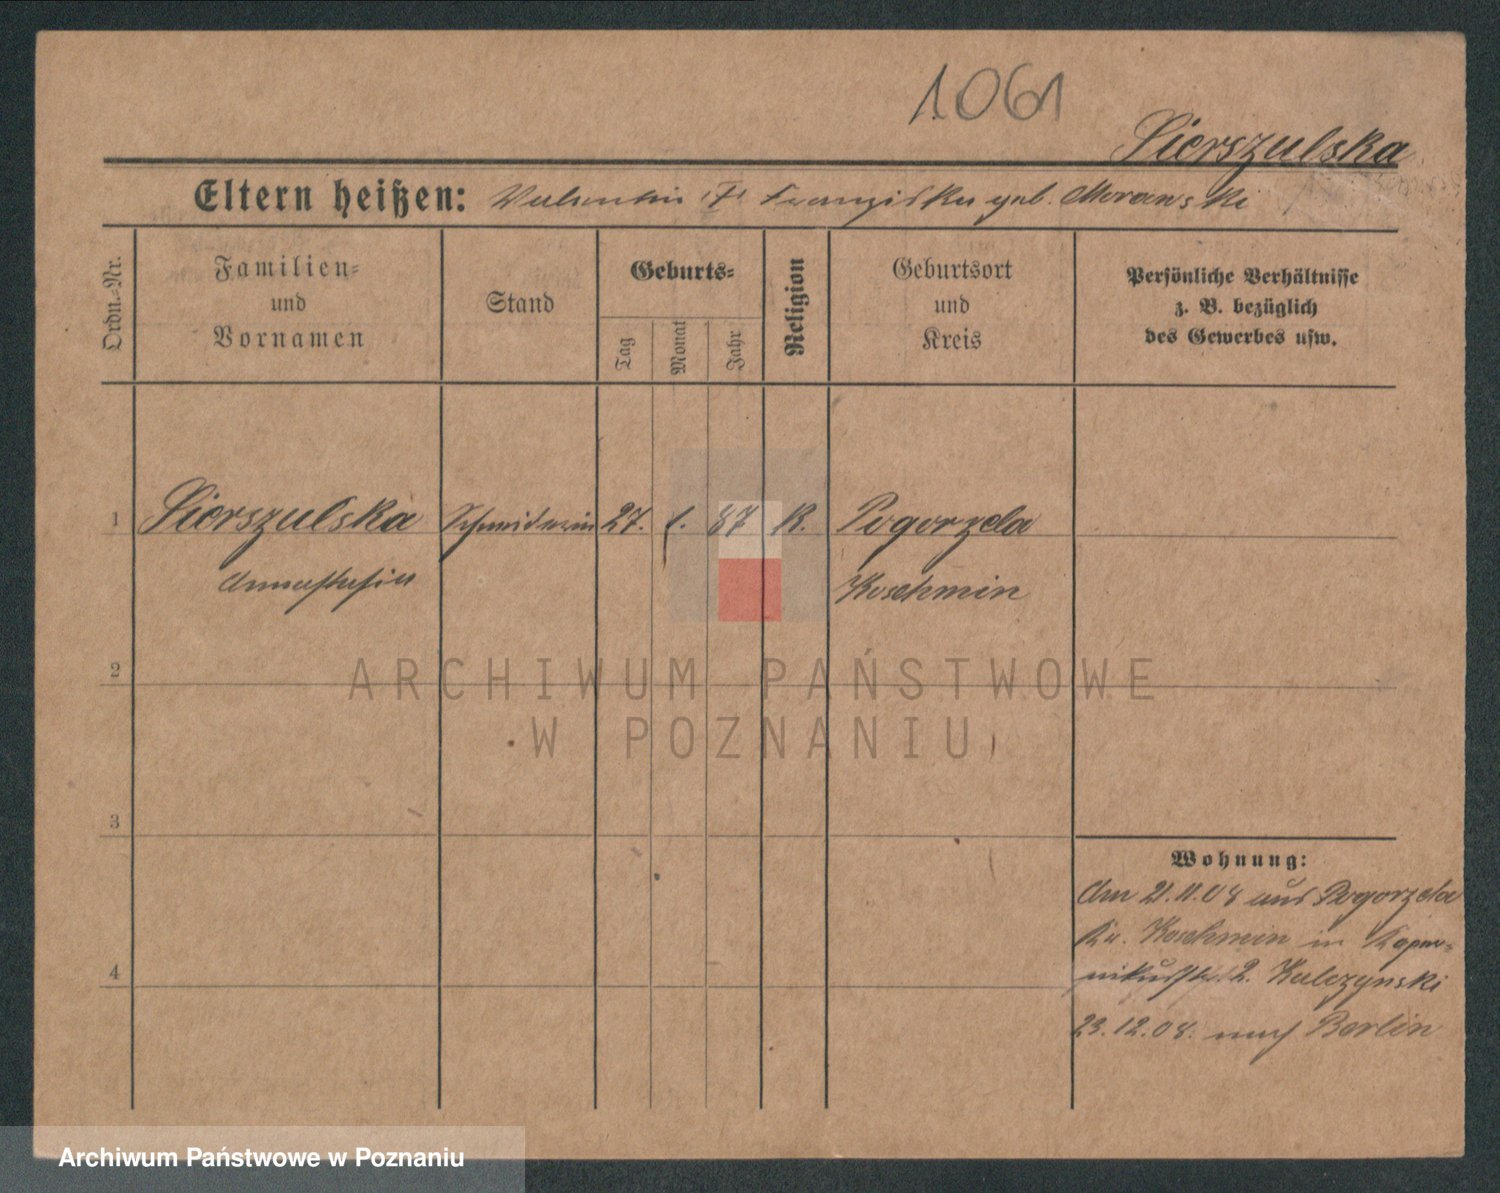 1061
Sierszulska
Eltern heißen: Valentin u. Franziska geb. Morawski
Ordn.-Nr.
Familien-
und
Vornamen
Stand
Geburts-
Tag
Monat
Jahr
Religion
Geburtsort
und
Kreis
Persönliche Verhältnisse
z. B. bezüglich
des Gewerbes usw.
1 Sierszulska Schneiderin 27. 87 K. Pogorzela
Annastasia Koschmin
2
ARCHIWUM PAŃSTWOWE
W POZNANIU
3
Wohnung:
Am 21.11.08 aus Pogorzela
Kr. Koschmin in Koper-
4
nikusstr. 2. Kulczynski
23.12.08. nach Berlin
Archiwum Państwowe w Poznaniu